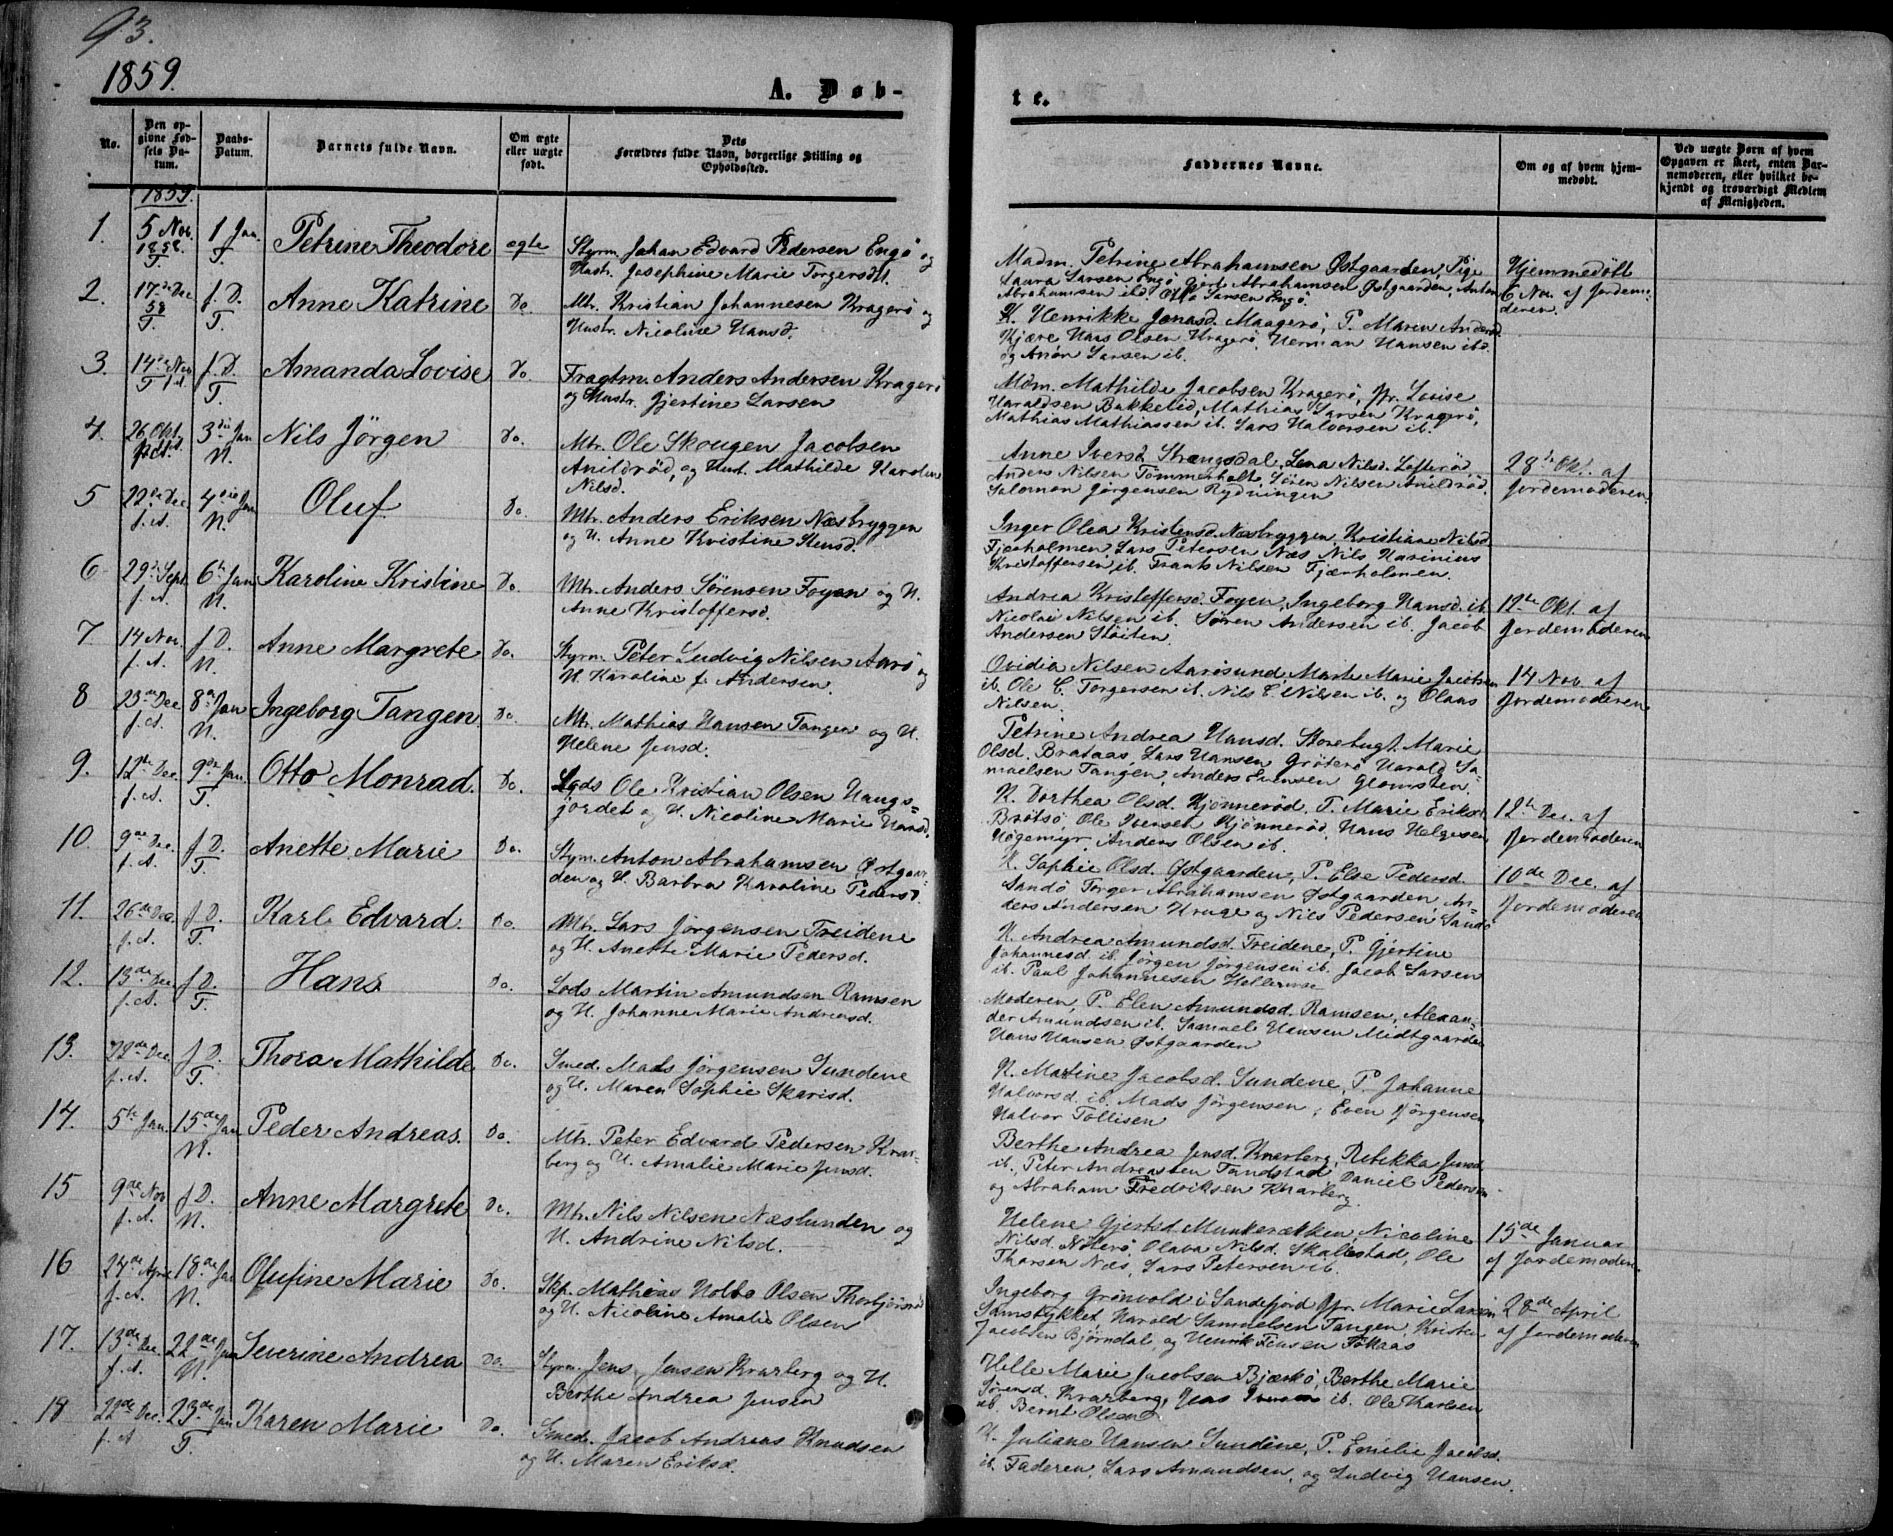 93.
1859.
A. Døb-
te.
No.
Den op-
givne Fød-
sels Da-
tum.
Daabs-
Datum.
Barnets fulde Navn.
Om ægte
eller uægte
født.
Dets
Forældres fulde Navn, borgerlige Stilling og
Opholdssted.
Faddernes Navne.
Om og af hvem hjem-
medøbt.
Ved uægte Børn af hvem
Opgaven er skeet, enten Bar-
nemoderen, eller hvilket be-
kjendt og troværdigt Medlem
af Menigheden.
1859.
1. 5 Nov. 1 Jan. Petrine Theodore ægte Styrm. Johan Edvard Pedersen Engø og
1858. T. Hustr. Josephine Marie Torgersdt.
T.
Madm. Petrine Abrahamsen Østgaarden, Pige
Laura Larsen Engø, Abrahamsen Østgaarden, Anton
Abrahamsen ibd. Otto Larsen Engø.
Hjemmedøbt
6 Nov. af Jordemo-
deren.
2. 17de Dec. f. D. Anne Katrine Do. Mtr. Kristian Johannesen Kragerø og
58 T. Hustr. Nicoline Hansd.
T.
K. Henrikke Jonasd. Maagerø, P. Maren Andersd.
Kjære Hans Olsen Kragerø, Herman Hansen ibd.
og Anon Larsen ib.
3. 14de Nov. f. D. Amanda Lovise Do. Fragtm. Anders Andersen Kragerø
T. T. og Hustr. Gjertine Larsen
Mdm. Mathilde Jacobsen Kragerø, Jfr. Lovise
Haraldsen Bakkelid, Mathias Larsen Kragerø,
Mathias Mathiassen ib. Lars Halvorsen ib.
4. 26 Okt. 3die Jan Nils Jörgen Do. Mtr. Ole Skougen Jacobsen
N. Anildrød, og Hust. Mathilde Karoline
Nilsd.
Anne Iversd Strengsdal, Lena Nilsd. Lofterød,
Anders Nilsen Tömmerholt, Sören Nilsen Anildrød.
Salomon Jörgensen Rydningen
28de Okt. af
Jordemoderen
5 22de Dec 4die Jan Oluf Do. Mtr. Anders Eriksen Næsbryggen
f. A. N. og H. Anne Kristine Stensd.
Inger Olea Kristensd. Næsbryggen, Kristiane Nilsd
Fjærholmen, Lars Petersen Næs, Nils Harinius
Kristoffersen ib. Frants Nilsen Fjærholmen.
6 29de Sept. 6te Jan Karoline Kristine Do. Mtr. Anders Sörensen Foyen og H.
f. A. N. Anne Kristoffersd.
Andrea Kristoffersd. Foyen, Ingeborg Hansd. ib.
Nicolai Nilsen ib. Sören Andersen ib. Jacob
Andersen Støiten.
12te Okt. af
Jordemoderen
7. 14 Nov. f D. Anne Margrete Do. Styrm. Peter Ludvig Nilsen Aarø og
f. A. N. H. Karoline f. Andersen.
Ovidia Nilsen Aarøsund, Marte Marie Jacobsen
ib. Ole C. Torgersen ib. Nils C. Nilsen ib. og Olaas
Nilsen.
14 Nov. af
Jordemoderen
8 23de Dec 8de Jan Ingeborg Tangen Do. Mtr. Mathias Hansen Tangen og H.
f. A. N. Helene Jensd.
Petrine Andrea Hansd. Storebugt, Marie
Olsd. Brataas, Lars Hansen Grøterø, Harald Sa-
muelsen Tangen, Anders Evensen Glomsten.
9. 12te Dec. 9de Jan. Otto Monrad. Do. Lods Ole Kristian Olsen Haugs-
f. A. T. jordet og H. Nicoline Marie Hansd.
K. Dorthea Olsd. Hjønnerød, P. Marie Eriksd.
Brøtsø, Ole Iversen Hjønnerød, Hans Helgesen
Høgemyr, Anders Olsen ib.
12te Dec. af
Jordemoderen
10. 9de Dec. f D. Anette Marie Do. Styrm. Anton Abrahamsen Østgaar-
f. A. T. den og H. Barbra Karoline Pedersd.
K. Sophie Olsd. Østgaarden, P. Else Pedersd.
Sandø, Torger Abrahamsen Østgaarden, An-
ders Andersen Kruge og Nils Pedersen Sandø
10de Dec. af
Jordemoderen
11. 26de Dec. f D. Karl Edvard. Do. Mtr. Lars Jörgensen Treidene
f. A. T. og H. Anette Marie Pedersd.
K. Andrea Amundsd. Treidene, P. Gjertine
Johannesd. ib. Jörgen Jörgensen ib. Jacob Larsen
ib. Paul Johannesen Hollernæs
12. 13de Dec. f D. Hans Do. Lods Martin Amundsen Ramsen
f. A. T. og H. Johanne Marie Andreasd.
Moderen, P. Elen Amundsd. Ramsen, Alexan-
der Amundsen ib. Samuel Hansen Midtgaarden
Hans Hansen Østgaarden
13. 22de Dec. f D. Thora Mathilde Do. Smed. Mads Jörgensen Sundene
f. A. T. og H. Maren Sophie Skarisd.
K. Martine Jacobsd. Sundene, P. Johanne
Halvorsd. ib. Mads Jörgensen, Even Jörgensen
Halvor Tollisen
14. 5te Jan. 15de Jan Peder Andreas. Do. Mtr. Peter Edvard Pedersen Krar-
N. berg og H. Amalie Marie Jensd.
Berthe Andrea Jensd. Knarberg, Rebekka Jensd
ib. Peter Andreassen Tandstad, Daniel Pedersen
og Abraham Fredriksen Knarberg.
15 9de Nov f D. Anne Margrete Do. Mtr. Nils Nilsen Næslunden og
f. A. N. H. Andrine Nilsd.
Helene Gjertsd. Munkerækken, Nicoline
Nilsd. Nøterø, Olava Nilsd. Skallestad, Ole
Thorsen Næs, Lars Petersen ib.
15de Januar
af Jordemoderen
16 24de April 18de Jan Olufine Marie Do. Skp. Mathias Holbo Olsen Thorbjørnrød
f. A. N. og H. Nicoline Amalie Olsen
Ingeborg Grönvold i Sandefjord, Jfr. Marie Larsen
Samstykket, Harald Samuelsen Tangen, Kristen
Jacobsen Bjørndal, og Henrik Jensen Tokaas
28de April
af Jordemoderen
17. 13de Dec. 22de Jan Severine Andrea Do Styrm. Jens Jensen Krarberg og H.
f. A. N. Berthe Andrea Jensen
Helle Marie Jacobsen Bjærkø, Berthe Marie
Sörensd. Krarberg, Jens Iversen ib. Ole Karlsen
ib. Bernt Olsen
18 22de Dec. 23de Jan Karen Marie Do. Smed. Jacob Andreas Knudsen
f. A T. og H. Maren Eriksd.
K. Juliane Hansen Sundene, P. Emilie Jacobsd.
ib. Faderen, Lars Amundsen, og Ludvig Hansen.